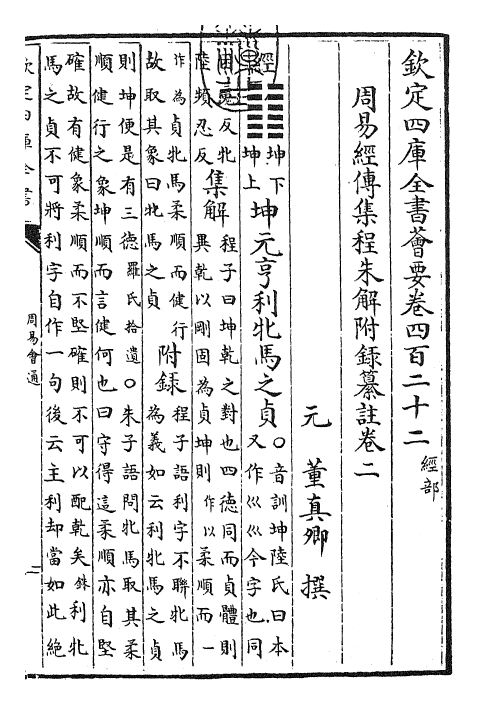 欽定四庫全書薈要卷四百二十二 經部
周易經傳集程朱解附録纂註卷二
元 董真卿 撰
經 ䷁ 坤下
坤上
坤元亨利牝馬之貞
○音訓坤陸氏曰本
又作巛巛今字也同
困魂反牝
陸頻忍反
集解
程子曰坤乾之對也四德同而貞體則
異乾以剛固為貞坤則作以柔順而一
作為貞牝馬柔順而健行
故取其象曰牝馬之貞
附録
程子語利字不聯牝馬
為義如云利牝馬之貞
則坤便是有三德羅氏拾遺○朱子語問牝馬取其柔
順健行之象坤順而言健何也曰守得這柔順亦自堅
確故有健象柔順而不堅確則不可以配乾矣銖利牝
馬之貞不可將利字自作一句後云主利却當如此絶
欽定四庫全書
周易會通